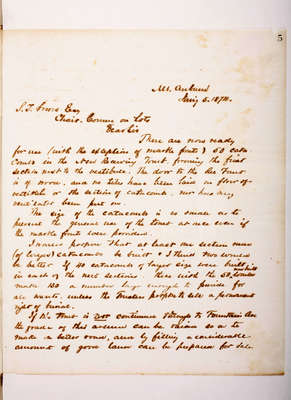 5
Mt. Auburn
Aug 5. 1874.
Esq
Chair. Comme on Lots
Dear Sir
There are now ready
for use (with the exception of marble fronts) 60 cata
combs in the New Receiving Tomb forming the first
section next to the vestibule. The door to the Tomb
is of wood, and no tiles have been laid on floor of
vestibule or the section of catacombs. Nor has any
ventilator been put on.
The size of the catacombs is so small as to
prevent the general use of the tomb at once even if
the marble fronts were provided.
I propose that at least one section more
(of larger) catacombs be built & I think two
be better if 40 catacombs of larger size were built
in each of the next sections. these with the 60
make 140 a number large enough to provide for
all wants, unless the Trustees propose to sell a permanent
right of burial.
If the Tomb is not continued through to Fountain Ave
the grade of this avenue can be raised so as to
make a better road, and by filling a considerable
amount of good land can be prepared for sale.